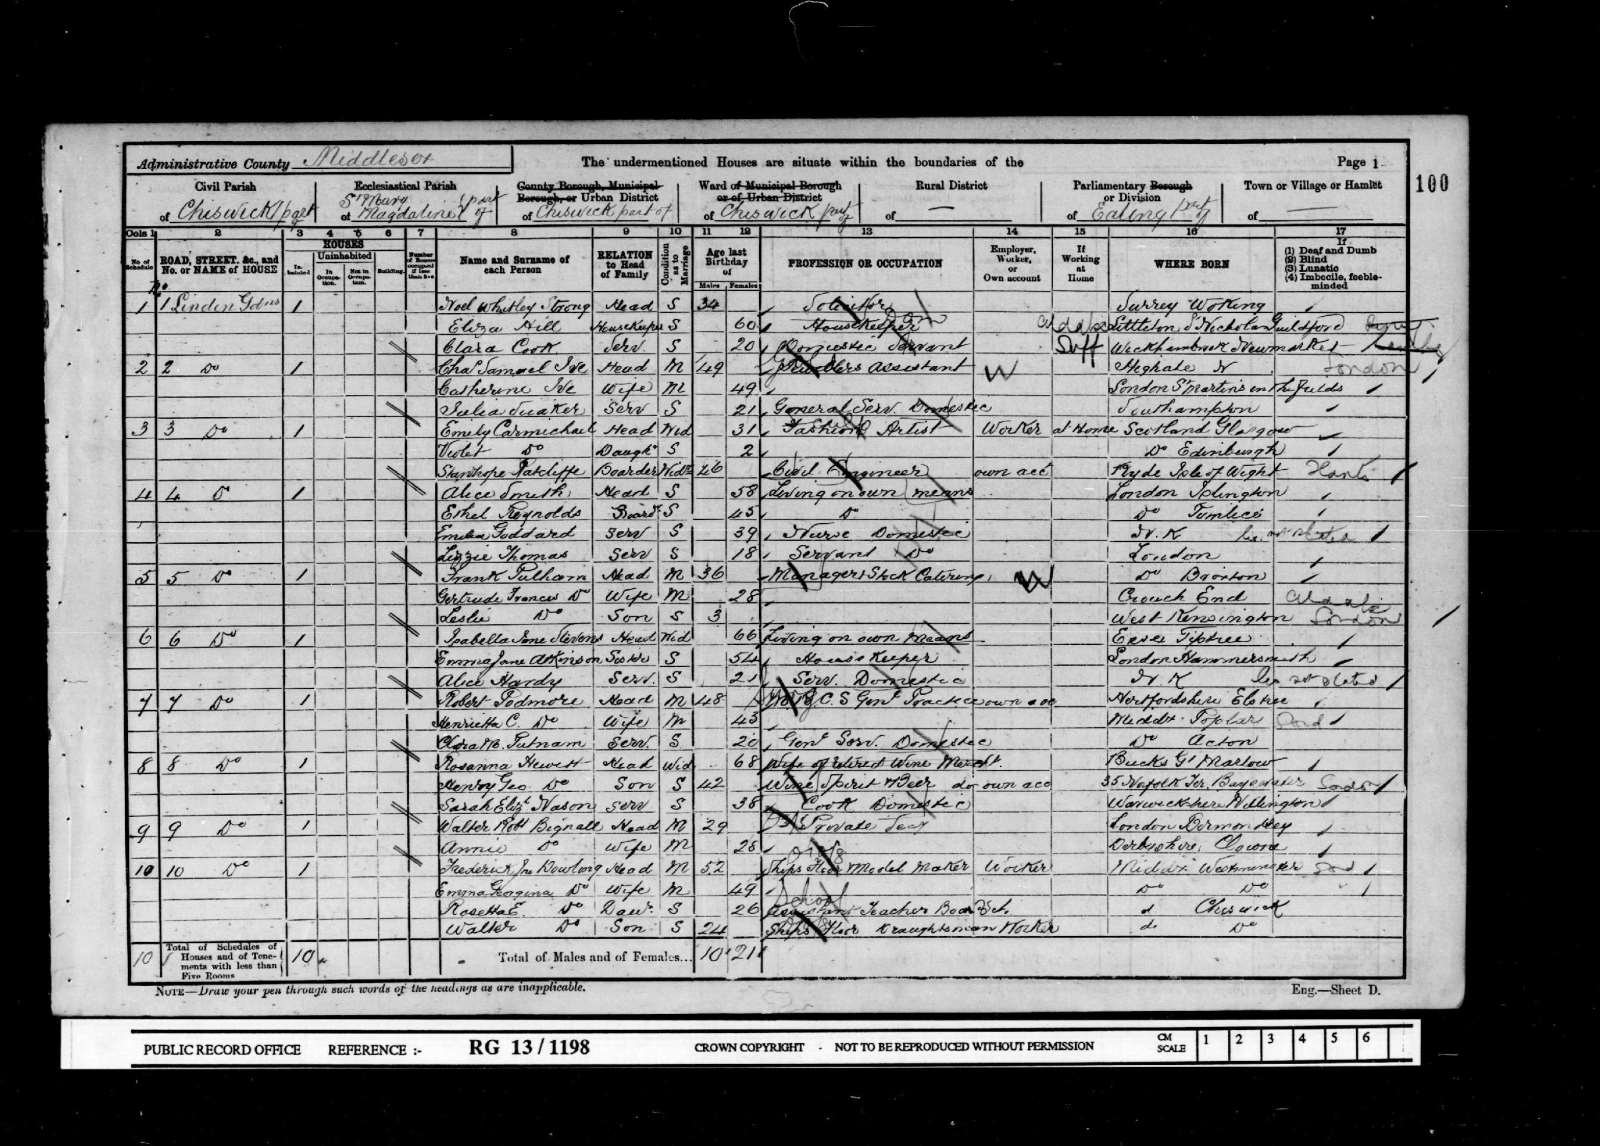 Administrative County Middlesex
The undermentioned Houses are situate within the boundaries of the
Page 1
100
Civil Parish of Chiswick part
Ecclesiastical Parish of St Mary Magdaline part of
County Borough, Municipal Borough, or Urban District of Chiswick part of
Ward of Municipal Borough or of Urban District of Chiswick part of
Rural District of —
Parliamentary Borough or Division of Ealing part of
Town or Village or Hamlet of —
Cols 1 2 3 4 5 6 7 8 9 10 11 12 13 14 15 16 17
No. of Schedule
ROAD, STREET, &c., and No. or NAME of HOUSE
HOUSES
In-habited
Uninhabited
In Occupa-tion.
Not in Occupa-tion.
Building.
Number of Rooms occupied if less than five
Name and Surname of each Person
RELATION to Head of Family
Condition as to Marriage
Age last Birthday of
Males Females
PROFESSION OR OCCUPATION
Employer, Worker, or Own account
If Working at Home
WHERE BORN
If (1) Deaf and Dumb (2) Blind (3) Lunatic (4) Imbecile, feeble-minded
No
1 1 Linden Gdns 1 Noel Whitley Strong Head S 34 Solicitor Surrey Woking
Eliza Hill Housekeeper S 60 Housekeeper Dom Littleton St Nicholas Guildford
Clara Cook Serv S 20 Domestic Servant Suff Newmarket
2 2 Do 1 Chas Samuel Ive Head M 49 Jewellers Assistant W Highgate N London
Catherine Ive Wife M 49 London St Martins in the Fields
Julia Serv S 21 General Serv. Domestic Southampton
3 3 Do 1 Emily Carmichael Head Wid 31 Fashion Artist Worker at Home Scotland Glasgow
Violet Do Daugh S 2 Do Edinburgh
Ratcliffe Boarder Widr 26 Civil Engineer own acc Ryde Isle of Wight Hants
4 4 D 1 Alice Smith Head S 58 Living on own means London Islington
Ethel Reynolds Boardr S 45 Do Do Pimlico
Emelia Goddard Serv S 39 Nurse Domestic N. K
Lizzie Thomas Serv S 18 Servant Do London
5 5 Do 1 Frank Fulham Head M 36 Manager W Do Brixton
Gertrude Frances Do Wife M 28 Crouch End
Leslie Do Son S 3 West Kensington London
6 6 Do 1 Isabella Jane Stevens Head Wid 66 Living on own Means Essex Tiptree
Emma Jane Atkinson Sister S 54 House Keeper London Hammersmith
Alice Hardy Serv. S 21 Serv. Domestic N. K not stated
7 7 Do 1 Robert Podmore Head M 48 C. S Genl Practice own acc Hertfordshire Elstree
Henrietta C. Do Wife M 45 Middx. Poplar Lond
Clara M. Putnam Serv. S 20 Genl Serv. Domestic Do Acton
8 8 Do 1 Rosanna Hewett Head Wid 68 Wife of retired Wine Mercht. Bucks Gt Marlow
Henry Geo Do Son S 42 Wine Spirit & Beer do own acc 35 Norfolk Ter. Bayswater London
Sarah Elizt Nason Serv S 38 Cook Domestic Warwickshire
9 9 Do 1 Walter Robt Bignall Head M 29 Private Secy London Bermondsey
Annie Do Wife M 28 Derbyshire, Clowne
10 10 Do 1 Frederick Jno Dowling Head M 52 Ships Model Maker Worker Middx Westminster Lond
Emma Georgina Do Wife M 49 Do Do
School
Rosetta E Do Daur. S 26 Assistant Teacher Board Sch. d Chiswick
Walter Do Son S 24 Ships Draughtsman Worker do Do
10 Total of Schedules of Houses and of Tene-ments with less than Five Rooms 10
Total of Males and of Females... 10 21
NOTE—Draw your pen through such words of the headings as are inapplicable.
Eng.—Sheet D.
PUBLIC RECORD OFFICE REFERENCE :- RG 13 / 1198 CROWN COPYRIGHT - NOT TO BE REPRODUCED WITHOUT PERMISSION CM SCALE 1 2 3 4 5 6